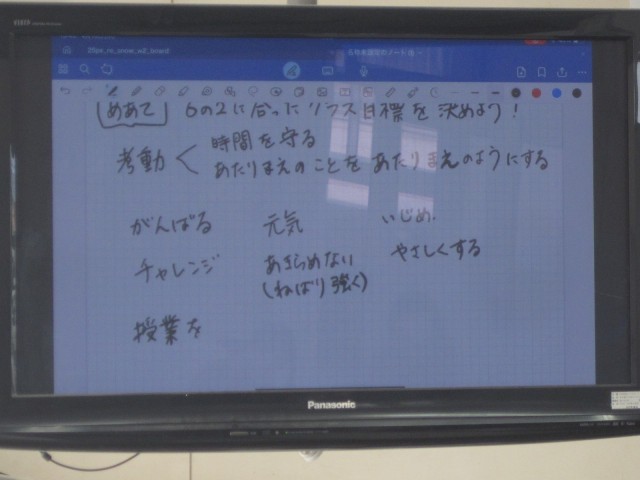 めあて 6の2に合ったクラス目標を決めよう!
考動 < 時間を守る
あたりまえのことをあたりまえのようにする
がんばる 元気 いじめ
チャレンジ あきらめない やさしくする
(ねばり強く)
授業を
Panasonic